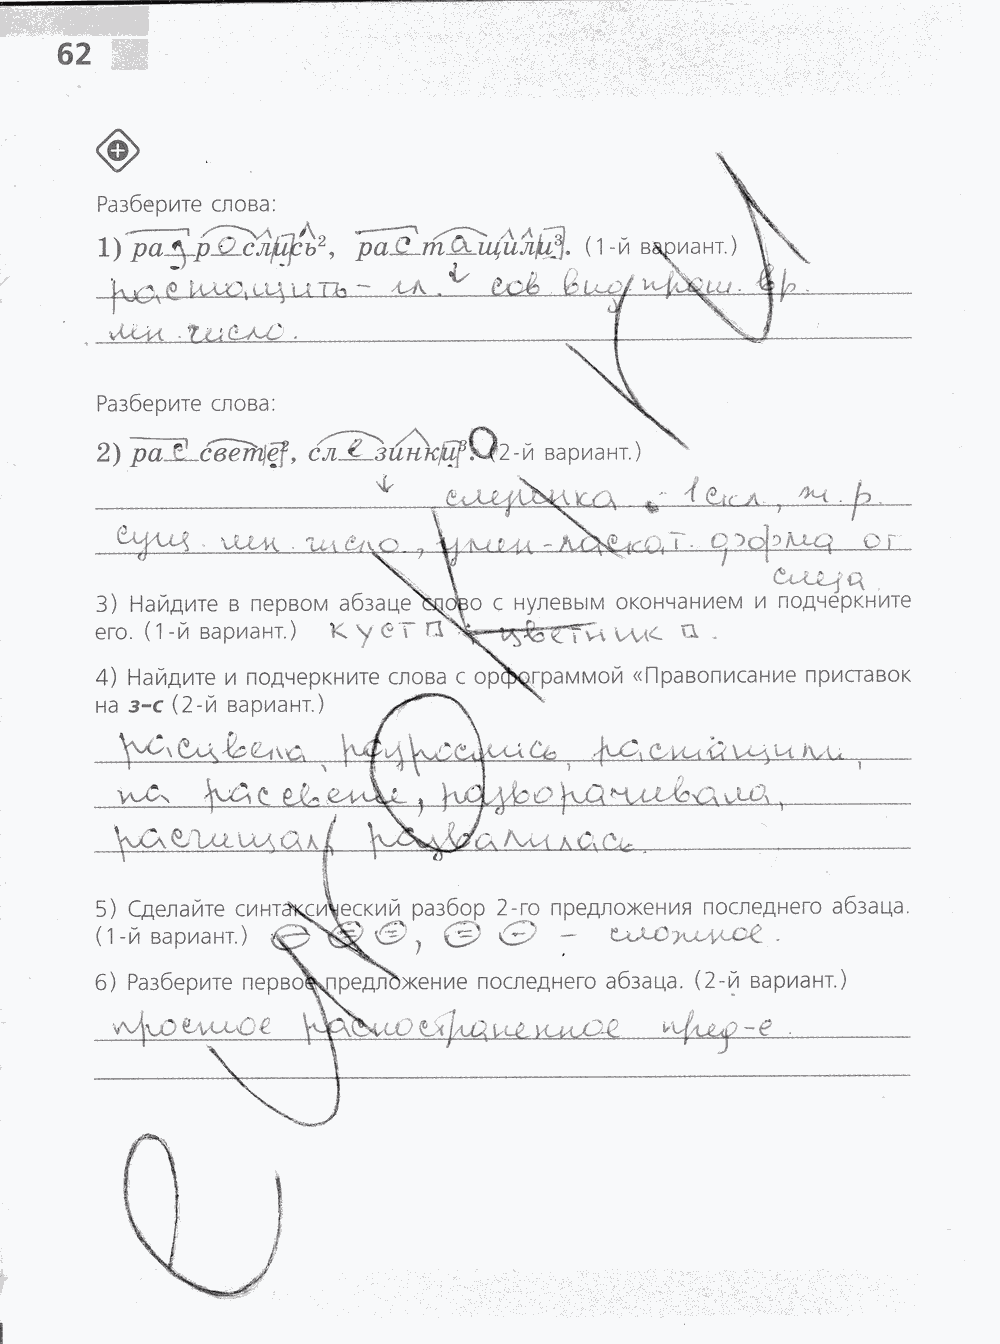 62
Разберите слова:
1) разрослись², растащили³. (1-й вариант.)
растащить – гл. 2 сов вид прош. вр.
мн. число.
Разберите слова:
2) рассвете², слезинки³. (2-й вариант.)
слезинка - 1 скл., ж. р.
сущ. мн. число, умен-ласкат. форма от
слеза
3) Найдите в первом абзаце слово с нулевым окончанием и подчеркните
его. (1-й вариант.) куст, цветник.
4) Найдите и подчеркните слова с орфограммой «Правописание приставок
на з–с (2-й вариант.)
расцвела, разрослись, растащили,
на рассвете, разворачивала,
расчищал, развалилась.
5) Сделайте синтаксический разбор 2-го предложения последнего абзаца.
(1-й вариант.) – сложное.
6) Разберите первое предложение последнего абзаца. (2-й вариант.)
простое распостраненное пред-е.